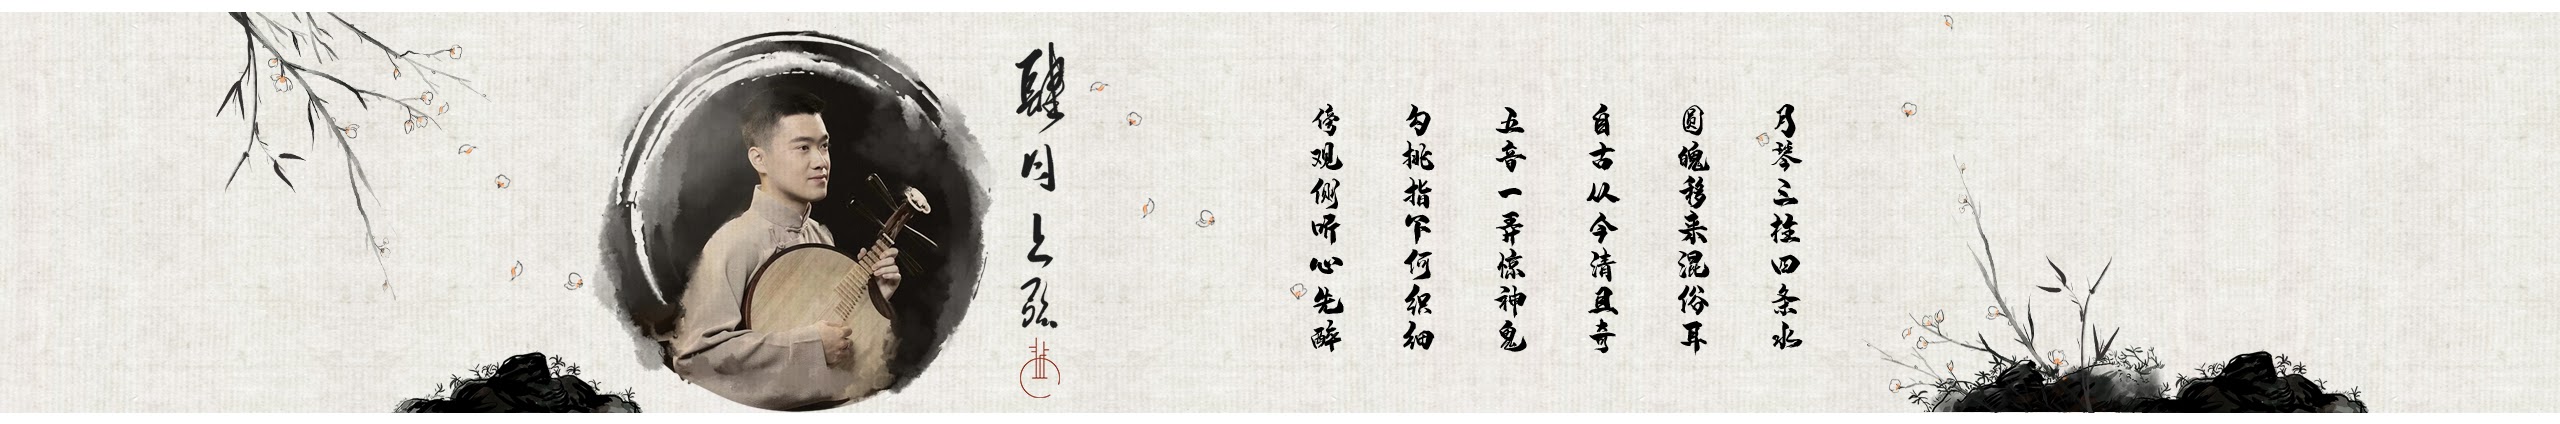 肆月上弦
月琴三柱四条水
圆魄移来混俗耳
自古从今清且奇
五音一弄惊神鬼
勾挑指下何织细
傍观侧听心先醉